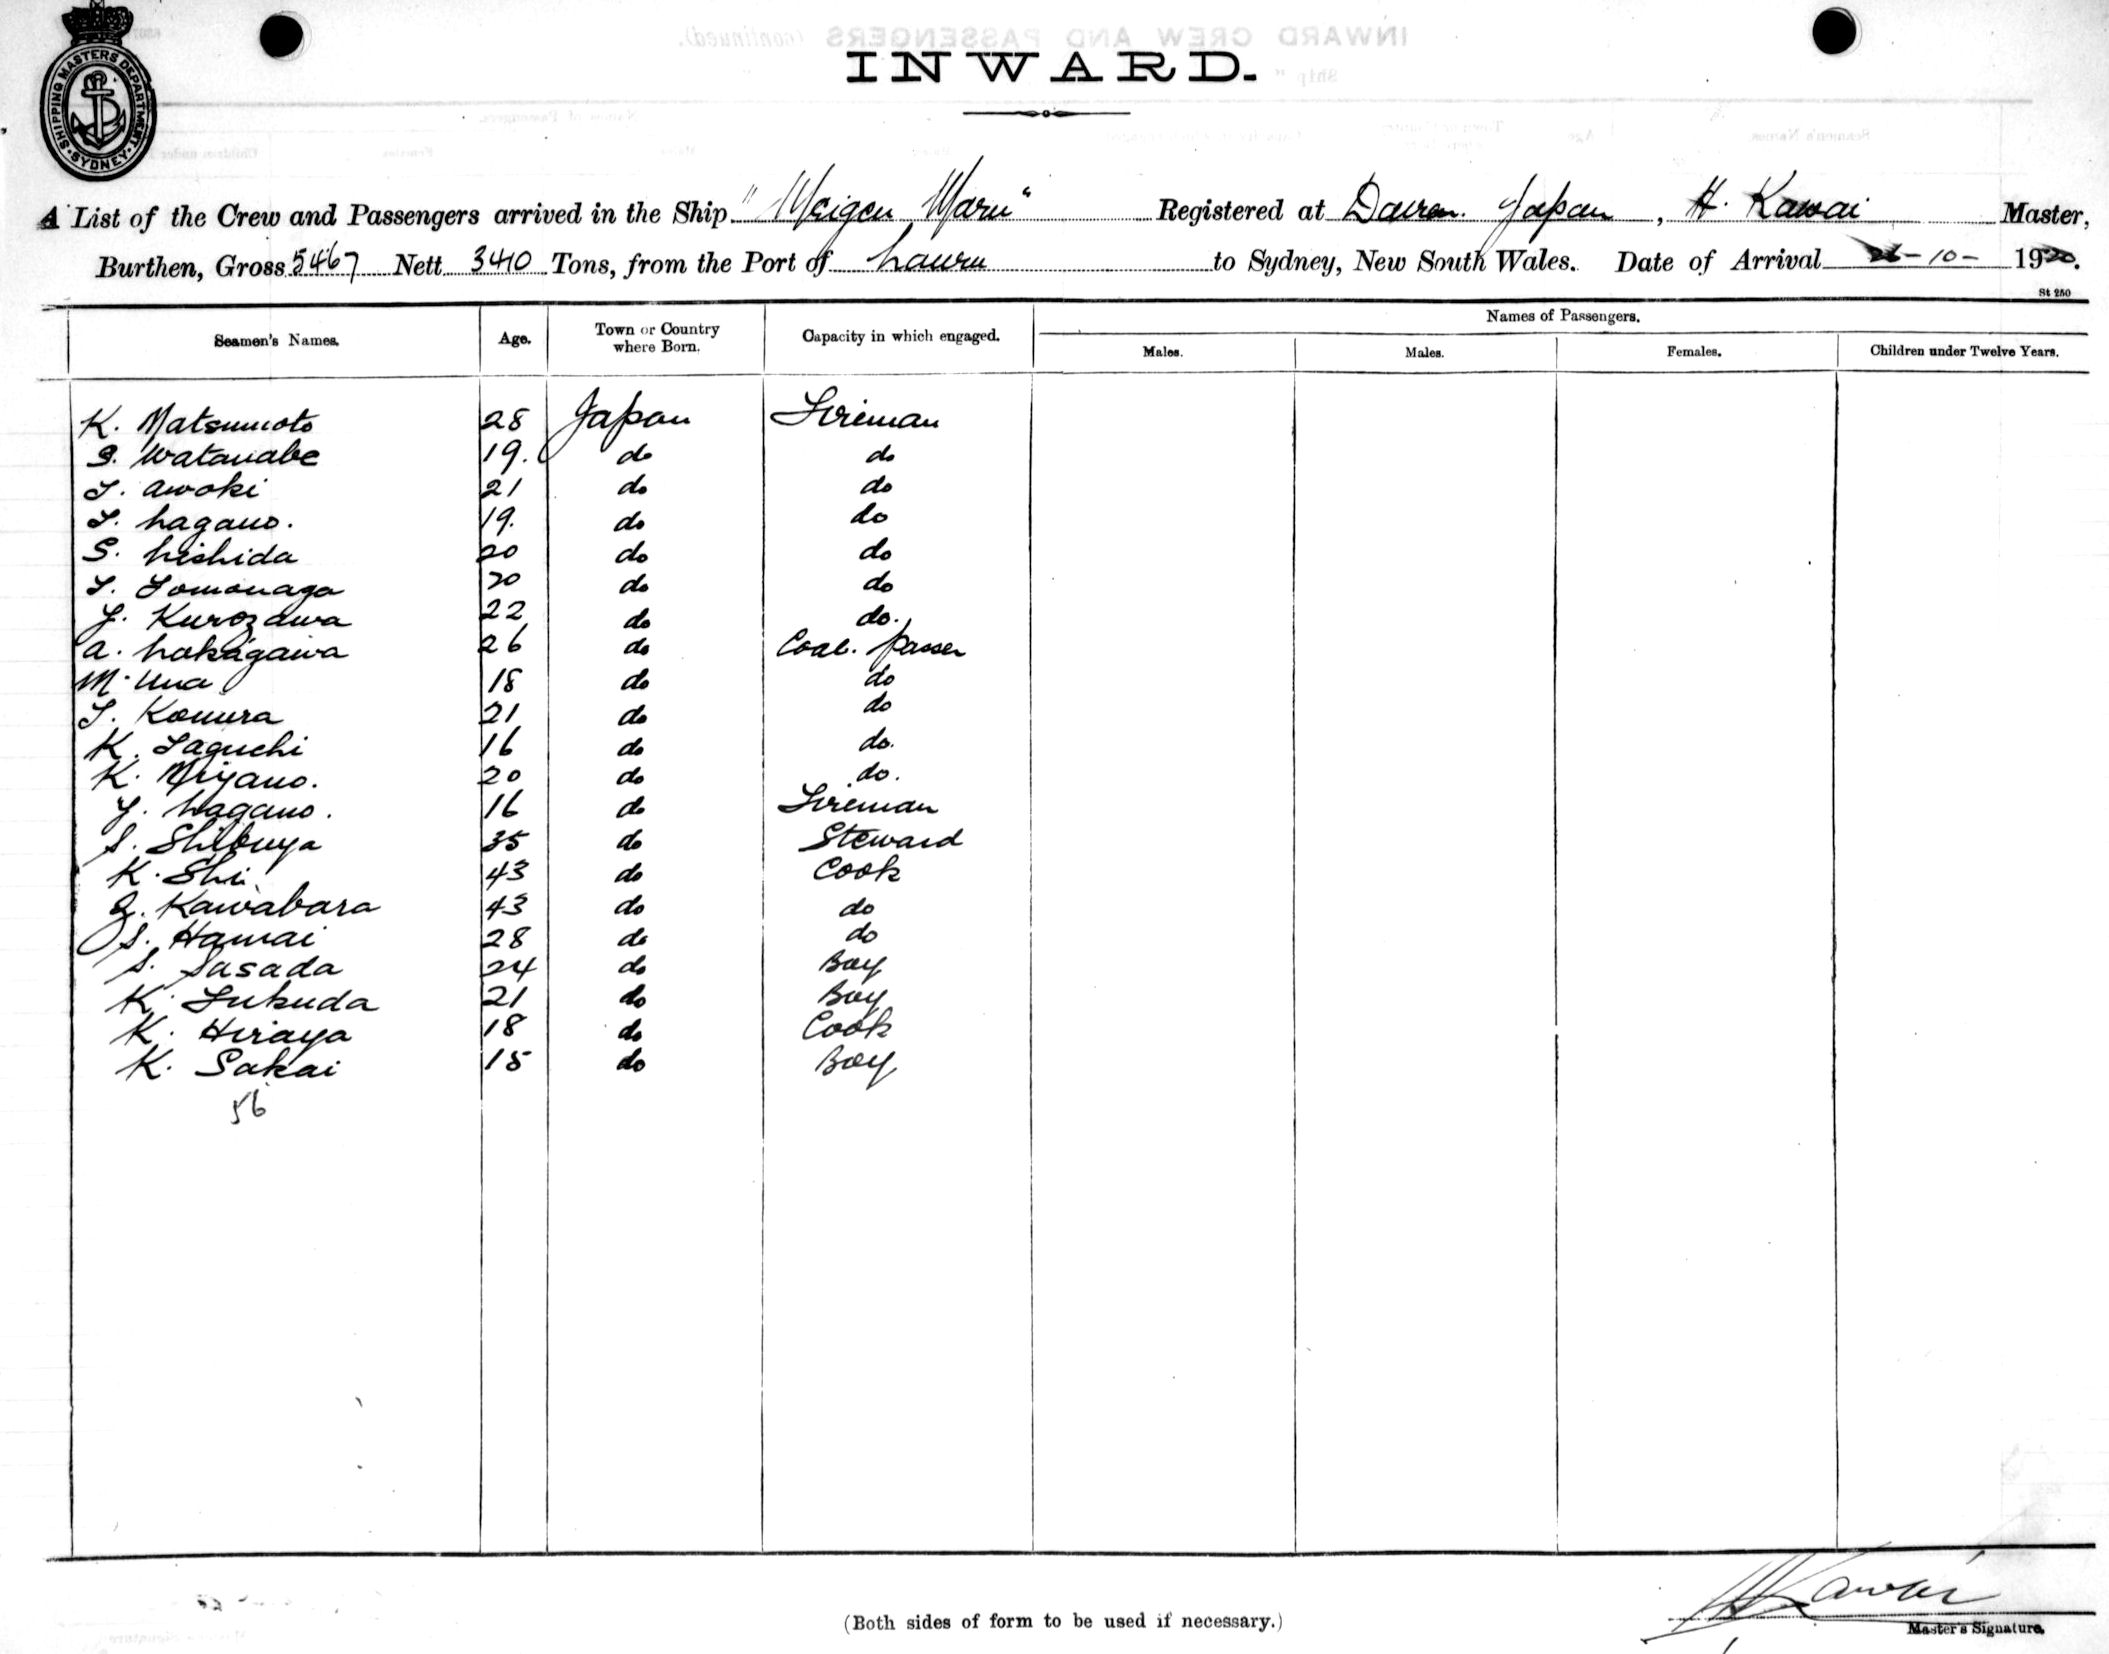 SHIPPING MASTERS DEPARTMENT
SYDNEY
INWARD.
A List of the Crew and Passengers arrived in the Ship "Meigen Maru" Registered at Dairen. Japan, H. Kawai Master,
Burthen, Gross 5467 Nett 3410 Tons, from the Port of Nauru to Sydney, New South Wales. Date of Arrival 26-10-1920.
St 250
Seamen's Names. Age. Town or Country where Born. Capacity in which engaged. Names of Passengers.
Males. Males. Females. Children under Twelve Years.
K. Matsumoto 28 Japan Fireman
S. Watanabe 19. do do
T. Awoki 21 do do
T. Nagano. 19. do do
S. Nishida 20 do do
T. Tomonaga 20 do do
Y. Kurozawa 22 do do.
A. Nakagawa 26 do Coal. Passer
M. Una 18 do do
T. Komura 21 do do
K. Taguchi 16 do do.
K. Miyano. 20 do do.
Y. Nagano. 16 do Fireman
S. Shibuya 35 do Steward
K. Shi 43 do Cook
Z. Kawabara 43 do do
S. Hamai 28 do do
S. Sasada 24 do Boy
K. Fukuda 21 do Boy
K. Hiraya 18 do Cook
K. Sakai 15 do Boy
56
H Kawai
(Both sides of form to be used if necessary.)
Master's Signature.